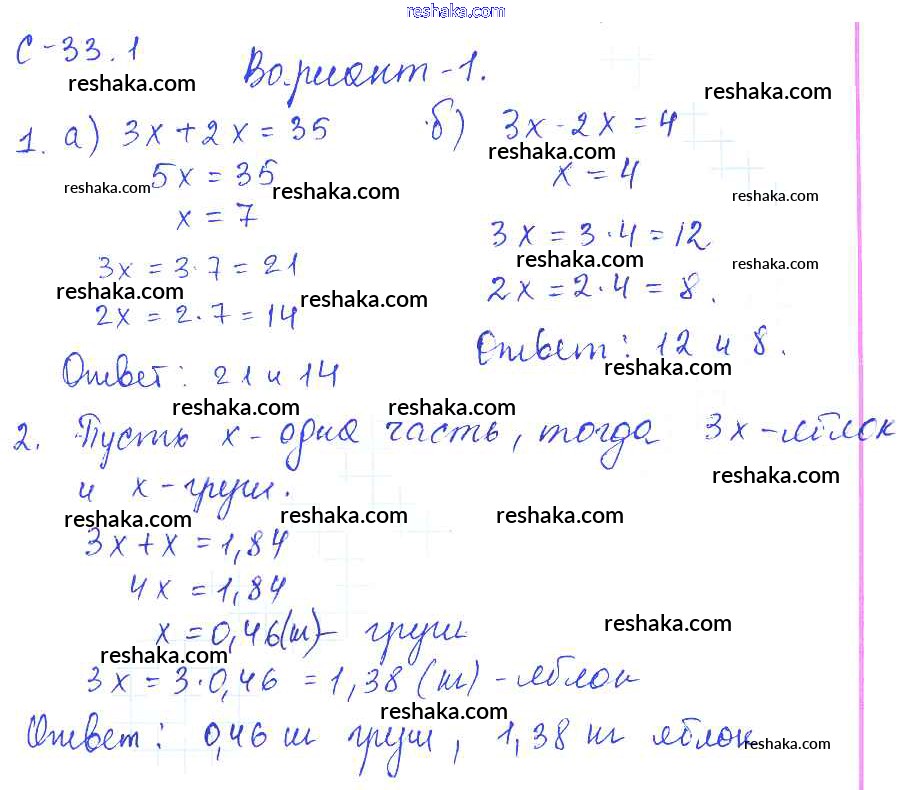 reshaka.com
С-33.1
Вариант-1.
reshaka.com reshaka.com
1. а) 3x + 2x = 35
5x = 35
x = 7
3x = 3·7 = 21
2x = 2·7 = 14
Ответ: 21 и 14
reshaka.com reshaka.com
reshaka.com reshaka.com
б) 3x - 2x = 4
x = 4
3x = 3·4 = 12
2x = 2·4 = 8.
Ответ: 12 и 8.
reshaka.com reshaka.com
reshaka.com reshaka.com
reshaka.com
reshaka.com reshaka.com
2. Пусть x - одна часть, тогда 3x - яблок
и x - груш.
reshaka.com
reshaka.com reshaka.com reshaka.com
3x + x = 1,84
4x = 1,84
x = 0,46 (т) - груш
reshaka.com
reshaka.com
3x = 3·0,46 = 1,38 (т) - яблок
reshaka.com
Ответ: 0,46 т груш, 1,38 т яблок
reshaka.com